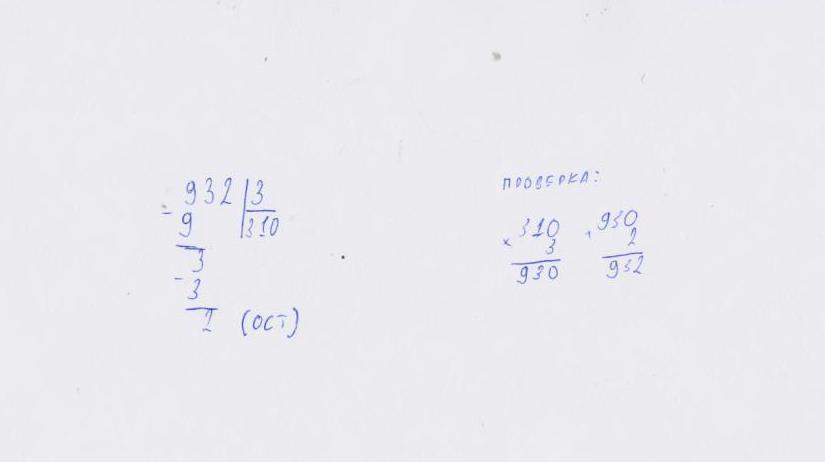 932 3
- 9 310
3
- 3
2 (ОСТ)
ПРОВЕРКА:
310
× 3
930
930
+ 2
932